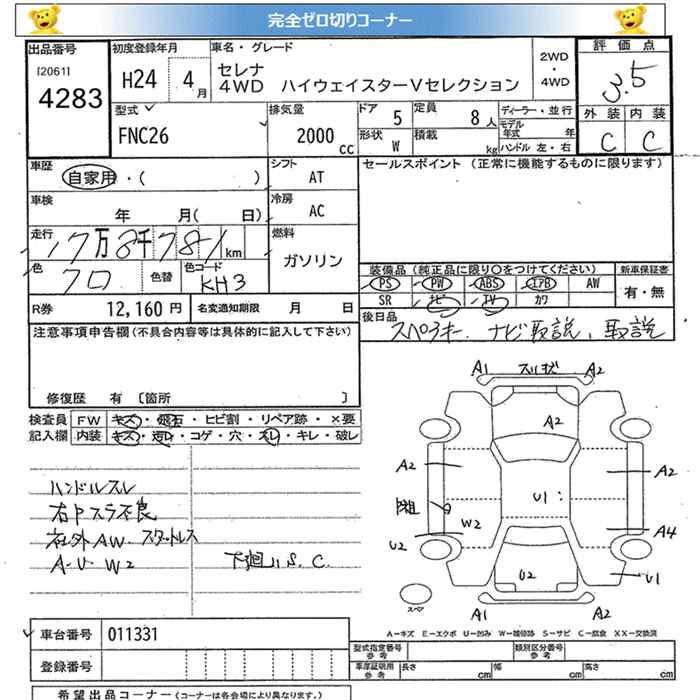 完全ゼロ切りコーナー
出品番号 初度登録年月 車名・グレード 2WD・4WD 評価点
[2061] 4283 H24 4月 セレナ 3.5
4WD ハイウェイスターVセレクション
型式 排気量 ドア 5 定員 8人 ディーラー・並行 外装 内装
FNC26 2000cc 形状 W 積載 kg モデル年式 年 C C
ハンドル 左・右
車歴 自家用・( ) シフト AT セールスポイント (正常に機能するものに限ります)
車検 年 月( 日) 冷房 AC
走行 17万8千781km 燃料 ガソリン
色 クロ 色替 色コード KH3 装備品 (純正品に限り○をつけてください) 新車保証書
PS PW ABS エアB AW 有・無
SR ナビ TV カワ
R券 12,160円 名変通知期限 月 日 後日品 スペアキー、ナビ取説、取説
注意事項申告欄(不具合内容等は具体的に記入して下さい)
修復歴 有 [箇所 ]
検査員 FW キズ・飛石・ヒビ割・リペア跡・×要
記入欄 内装 キズ・汚レ・コゲ・穴・スレ・キレ・破レ
ハンドルスレ
右Pスラ不良
社外AW スタットレス
A-U W2 下廻りS.C.
A1 スリキズ A2
A2
A2 A2
U1
W2 A4
U2
U2 U1
スペア A1 A2
A-キズ E-エクボ U-凹み W-補修跡 S-サビ C-腐食 XX-交換済
車台番号 011331 型式指定番号 参考 類別区分番号 参考
登録番号 車庫証明用 参考 長さ cm 幅 cm 高さ cm
希望出品コーナー (コーナーは各会場により異なります。)